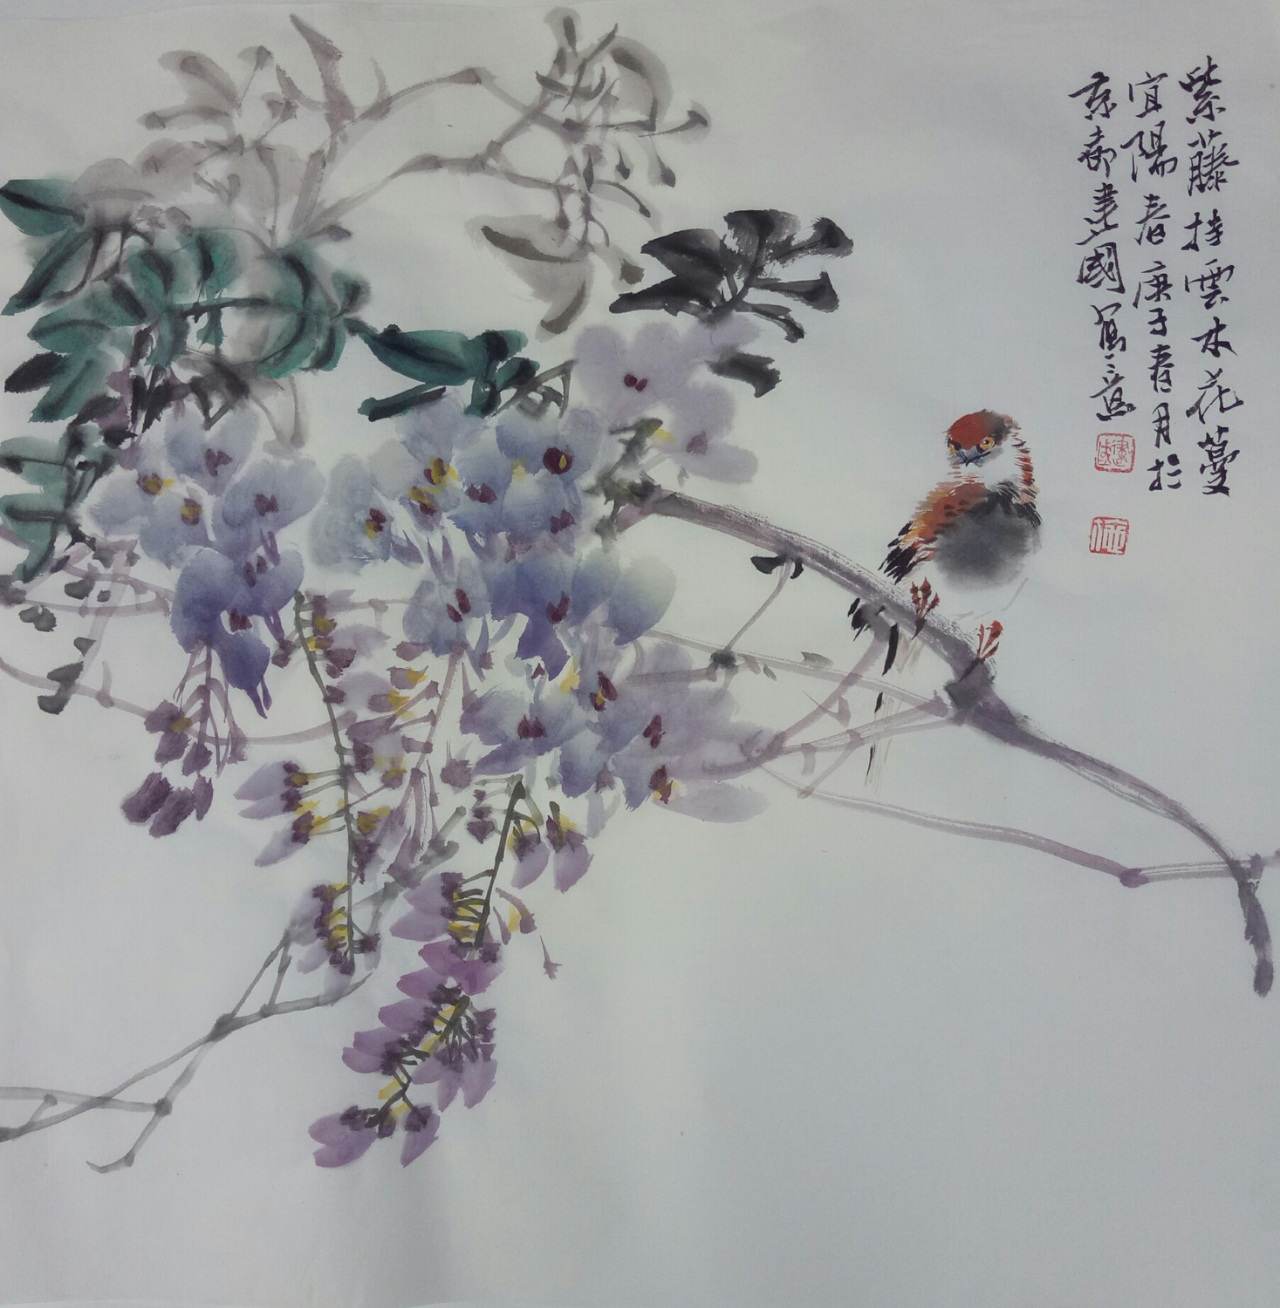 紫藤持雲木花蔓
宜陽春庚子春月於
京都建國寫意